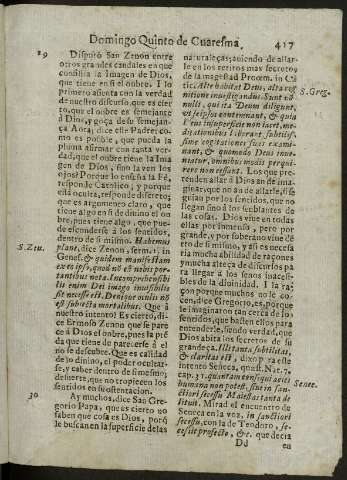 Domingo Quinto de Cuaresma, 417
29 Disputò San Zenon entre
otros grandes caudales en que
consistia la Imagen de Dios,
que tiene en si el onbre. I lo
primero assienta con la verdad
de nuestro discurso, que es cier
to, que el onbre es semejança
a Dios, y goça de su semejan-
ça Aora; dice este Padre: co-
mo es posible, que pueda la
pluma afirmar con tanta ver-
dad, que el onbre tiene la Ima
gen de Dios, sino la ven los
ojos? Porque lo enseña la Fè,
responde Catolico; y porque
està oculta, responde discreto;
que es argumento claro, que
tiene algo en si de divino el on
bre, pues tiene algo, que pue-
de esconderse a los sentidos,
dentro de si mismo. Habemus
S. Zen. plane, dice Zenon, serm. 1. in
Genes. & quidem manifestam
ex ipso, quod est & nobis por-
tantibus nota. Incomprehensibi
lis enim Dei imago invisibilis
sit necesse est. Denique oculis nõ
est subiecta mortalibus. Que à
nuestro intento! Es cierto, di-
ce Ermoso Zenon que se pare
ce à Dios el onbre, pues la prẽ
da que tiene de parecerse à el
no se descubre. Que es calidad
de lo divino, el poder ocultar-
se, y caber dentro de si mesmo;
de suerte, que no tropiecen los
sentidos en su ostentacion.
30 Ay muchos, dice San Gre-
gorio Papa, que es cierto no
saben que cosa es Dios, porq̃
le buscan en la superficie de las
naturaleças; aviendo de allar-
le en los retiros mas secretos
de la magestad Proœm. in Cã
tic. Alte habitat Deus, alta co S. Greg.
nitione investigandus. Sunt nõ
nulli, qui ita Deum diligunt,
ut se ipsos contemnant, & quia
Deus imperfecte non iacet, me-
ditationibus liberant, subtilis-
sime cogitationes suas exami-
nant, & quomodo Deus inve-
niatur, omnibus modis perqui-
rere non cessant. Los que pre-
tenden allar à Dios an de ima-
ginar, que nò an de allarle, si se
guian por los sentidos; que no
llegan sino à los senblantes de
las cosas. Dios vive en todas
ellas por inmenso, pero por
grande, y por soberano vive dẽ
tro de si mismo, y asi es necesa
ria mucha abilidad de raçones
y mucha alteça de discursos pa
ra llegar à los senos inacesi-
bles de la divinidad. I la ra-
çon porque muchos no le co-
cen, dice Gregorio, es, porque
se imaginaron tan cerca de los
sentidos, que basten ellos para
entenderle, siendo verdad, que
Dios abita los secretos de su
grandeça. Illi tanta subtilitas,
& claritas est, dixo para este
intento Seneca, quæst. Nat. 7.
cap. 31. quantam consequi acies Senec.
humana non potest, sive in san-
ctiori secessu Maiestas tanta de
lituit. Mirad el encuentro de
Seneca en la voz, in sanctiori
secessu, con la de Teodoro, se-
cessit profecto, &c. que decia
Dd en